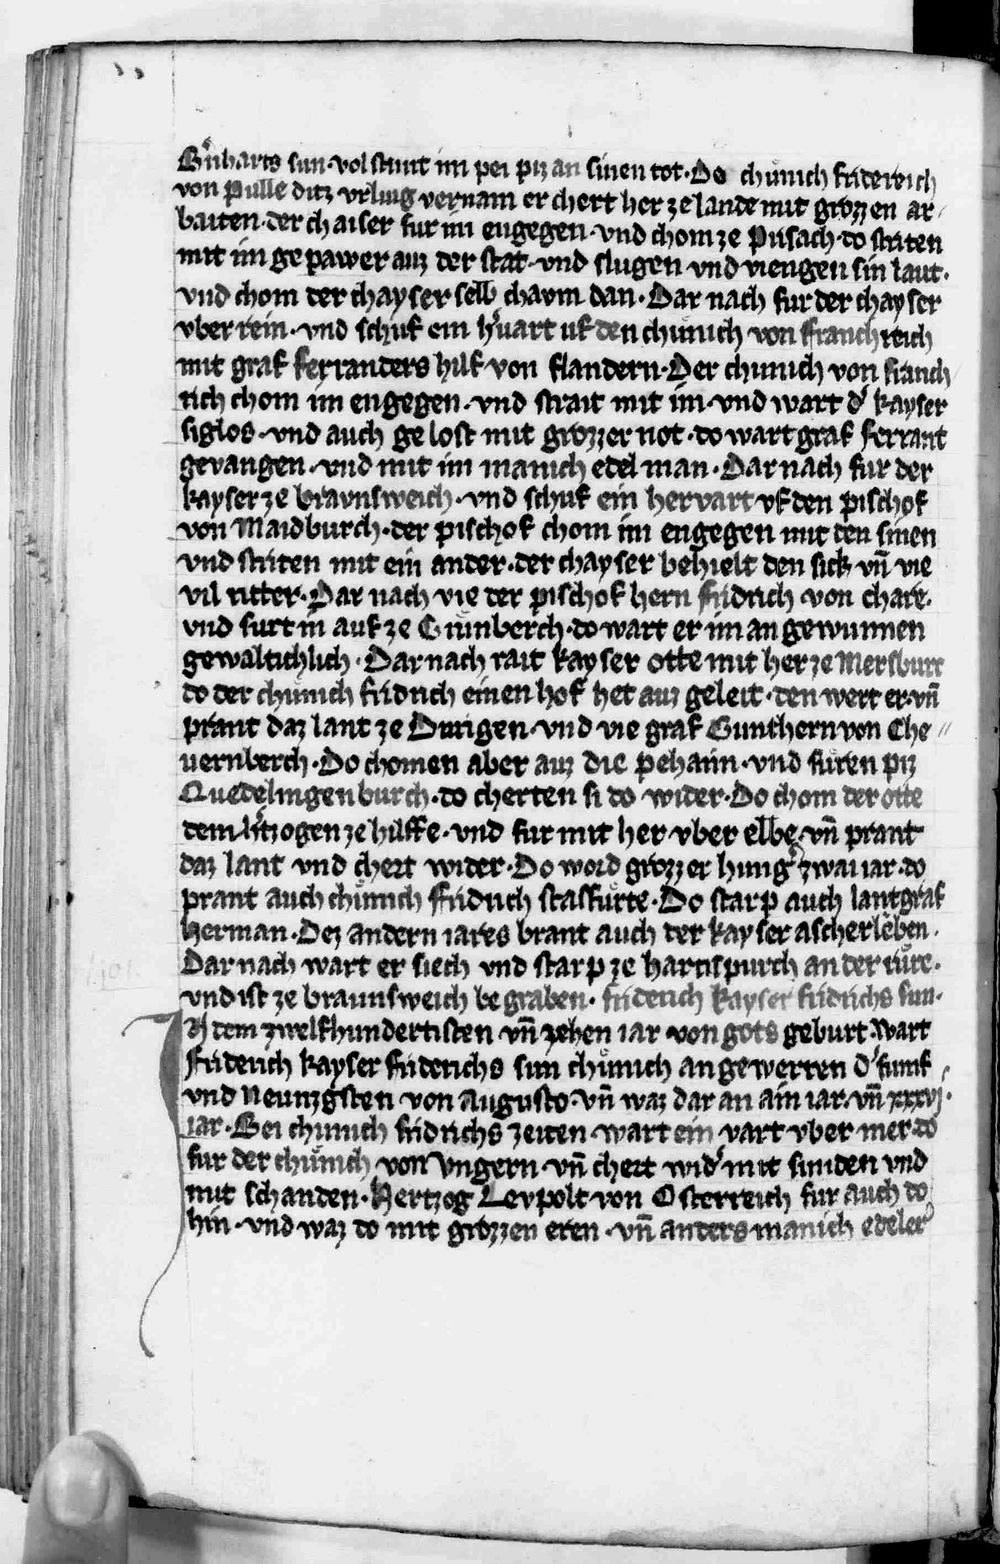 B'nharts sun vol stunt im pei piz an sinen tot · Do chuͤnich friderich
von Pulle ditz vrlivg vernam er chert her ze lande mit grozzen ar-
baiten · der chaiser fur im engegen · vnd chom ze Prisach · do striten
mit im gepawer auz der stat · vnd slugen vnd viengen sin laut ·
vnd chom der chayser selb chavm dan · Dar nach fur der chayser
vber rein · vnd schuf ein h'uart uf den chuͤnich von Franchreich
mit graf ferranders hilf von flandern · Der chunich von franch
rich chom im engegen · vnd strait mit im · vnd wart d' kayser
siglos · vnd auch gelost mit grozzer not · do wart graf ferrant
gevangen · vnd mit im manich edel man · Dar nach fur der
kayser ze bravnsweich · vnd schuf ein hervart vf den pischof
von Maidburch · der pischof chom im engegen mit den sinen
vnd striten mit ein ander · der chayser behielt den sick · vn̄ vie
vil ritter · Dar nach vie der pischof hern fridrich von chare ·
vnd furt in auf ze Gruͤnberch · do wart er im an gewunnen
gewaltichlich · Dar nach rait kayser otte mit her ze Mersburc
do der chuͤnich fridrich einen hof het auz geleit · den wert er · vn̄
prant daz lant ze Durigen · vnd vie graf Gunthern von Che-
vernberch · Do chomen aber auz die pehaim · vnd fuͤren piz
Quedelingenburch · do cherten si do wider · Do chom der otte
dem h'tzogen ze hilffe · vnd fur mit her vber elbe · vn̄ prant
daz lant vnd chert wider · Do word grozzer hung' zwai iar · do
prant auch chuͤnich Fridrich stasfuͤrte · Do starp auch lantgraf
Herman · Dez andern iares brant auch der kayser ascherleben ·
Dar nach wart er siech vnd starp ze hartispurch an der ruͤre ·
vnd ist ze braunsweich begraben · friderich kayser fridrichs sun ·
In dem zwelfhundertisten vn̄ zehen iar von gots geburt wart
Friderich kayser friderichs sun chuͤnich an gewerren d' funf
vnd Neunzgsten von Augusto · vn̄ waz dar an ain iar · vn̄ xxxvj ·
iar · Bei chunich fridrichs zeiten wart ein vart vber mer · do
fur der chuͤnich von Vngern · vn̄ chert wid' mit sunden vnd
mit schanden · Hertzog Levpolt von Osterreich fur auch do
hin · vnd waz do mit grozzen eren · vn̄ anders manich edeler